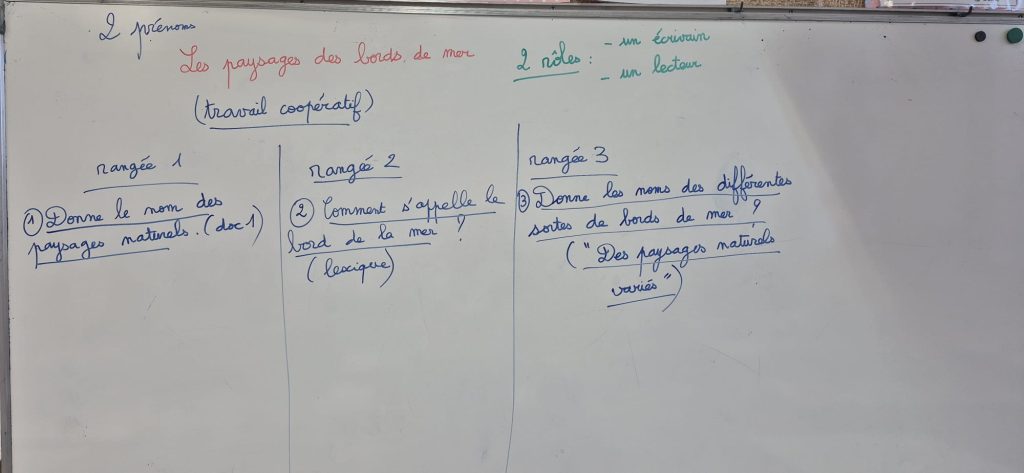 2 prénoms
Les paysages des bords de mer
2 rôles : - un écrivain
- un lecteur
(travail coopératif)
rangée 1
① Donne le nom des
paysages naturels. (doc 1)
rangée 2
② Comment s'appelle le
bord de la mer ?
(lexique)
rangée 3
③ Donne les noms des différentes
sortes de bords de mer ?
("Des paysages naturels
variés")